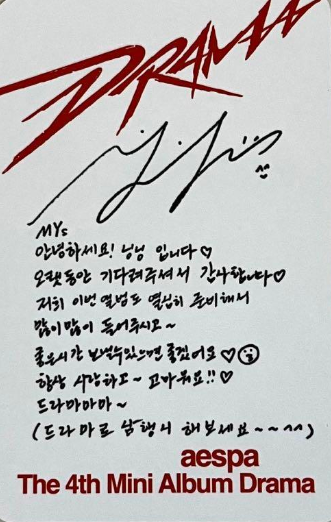 DRAMA
MYs
안녕하세요! 닝닝 입니다♡
오랫동안 기다려주셔서 감사합니다♡
저희 이번 앨범도 열심히 준비해서
많이많이 들어주시고~
좋은시간 보낼수있으면 좋겠어요♡☺
항상 사랑하고~ 고마워요!!♡
드라마아마~
(드라마로 삼행시 해보세요~~^^)
aespa
The 4th Mini Album Drama